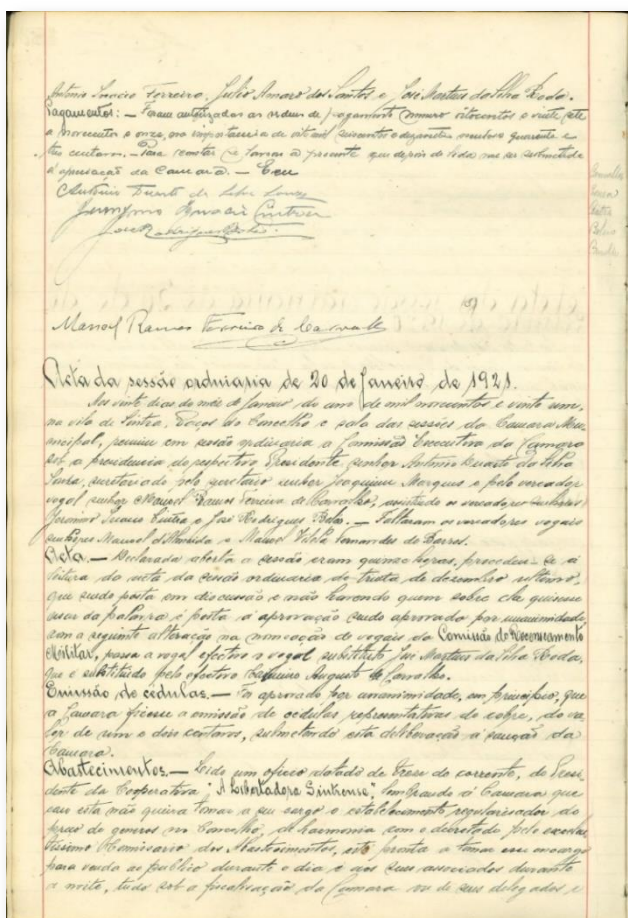 Antonio Ignacio Ferreira, Julio Amaro dos Santos e José Martins da Silva Roda.
Pagamentos: — Foram autorizadas as ordens de pagamento numero oitocentos e vinte e sete
a novecentos e onze, na importancia de oito mil e dezanove escudos quarenta e
tres centavos. — Para constar se lavrou a presente que depois de lida vae ser submetida
á aprovação da Camara. — E eu
Antonio Duarte da Silva
Jeronymo Ignacio Cintra
José Rodrigues
Manoel Ramos Ferreira de Carvalho
Acta da sessão ordinaria de 20 de Janeiro de 1921.
Aos vinte dias do mês de Janeiro do ano de mil novecentos e vinte e um,
na vila de Sintra, Paços do Concelho e sala das sessões da Camara Mu-
nicipal, reuniu em sessão ordinaria a Comissão Executiva da Camara
sob a presidencia do respectivo Presidente, senhor Antonio Duarte da Silva
secretariado pelo secretario senhor Joaquim Marques e pelo vereador
vogal senhor Manoel Ramos Ferreira de Carvalho, assistindo os vereadores senhores
Jeronimo Ignacio Cintra e José Rodrigues — Faltaram os vereadores vogais
senhores Manoel d'Almeida e Manoel Vilela Fernandes de Barros.
Acta. — Declarada aberta a sessão eram quinze horas, procedeu-se á
leitura da acta da sessão ordinaria de trinta de dezembro ultimo,
que sendo posta em discussão e não havendo quem sobre ela quizesse
usar da palavra é posta á aprovação sendo aprovada por unanimidade,
com a seguinte alteração na nomeação de vogais da Comissão do Recenseamento
Militar, passa a vogal efectivo o vogal substituto José Martins da Silva Roda,
que é substituido pelo efectivo Augusto de Carvalho.
Emissão de cedulas. — Foi aprovado por unanimidade, em principio, que
a Camara fizesse a emissão de cedulas representativas de cobre, do va-
lor de um e dois centavos, submetendo esta deliberação á sanção da
Camara.
Abastecimentos. — Lido um oficio datado de treze do corrente, do Presi-
dente da Cooperativa "A Libertadora Sintrense," lembrando á Camara que
caso esta não queira tomar a seu cargo o estabelecimento regularisador do
preço de generos no Concelho, de harmonia com o decretado pelo excelen-
tissimo Comissario dos Abastecimentos, está pronta a tomar esse encargo
para venda ao publico durante o dia e aos seus associados durante
a noite, tudo sob a fiscalisação da Camara ou de seus delegados e